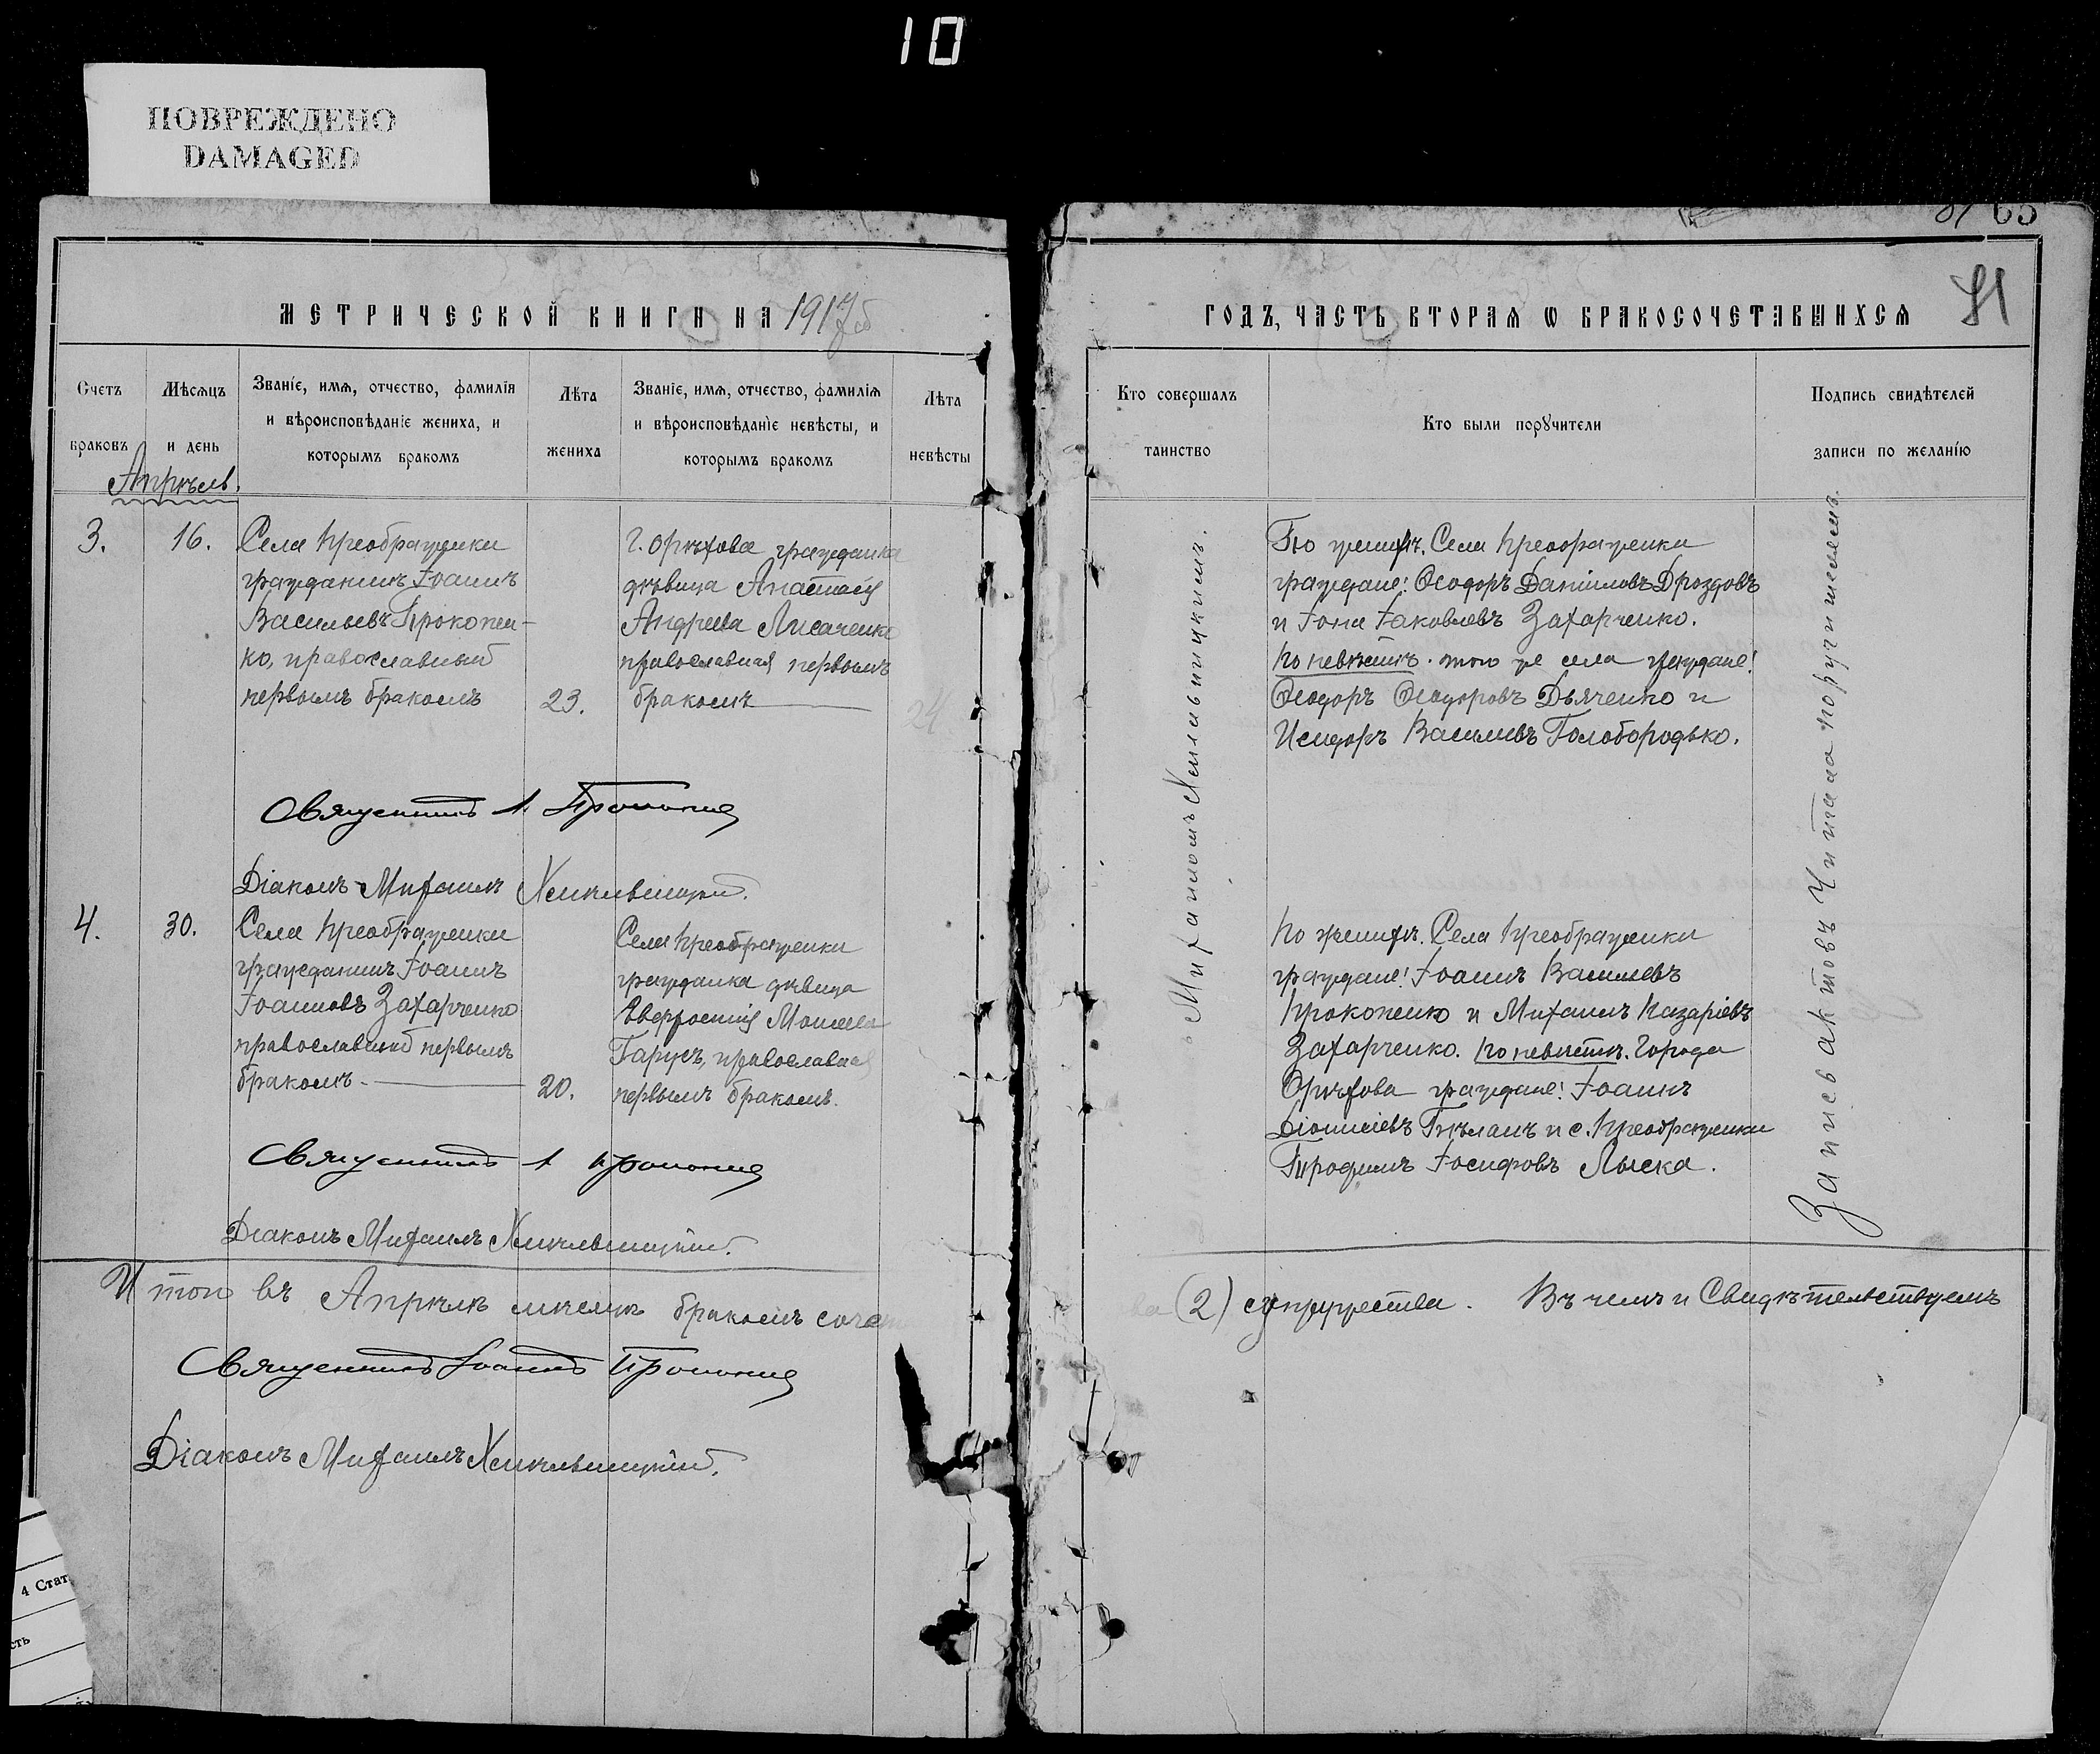 10
ПОВРЕЖДЕНО
DAMAGED
МЕТРИЧЕСКОЙ КНИГИ НА 1917
Счетъ
браковъ
Мѣсяцъ
и день
Званіе, имя, отчество, фамилія
и вѣроисповѣданіе жениха, и
которымъ бракомъ
Лѣта
жениха
Званіе, имя, отчество, фамилія
и вѣроисповѣданіе невѣсты, и
которымъ бракомъ
Лѣта
невѣсты
Апрѣль.
3.
16.
Села Преображенки
гражданинъ Іоаннъ
Васильевъ Прокопен-
ко, православный
первымъ бракомъ
23.
г. Орѣхова гражданка
дѣвица Анастасія
Андреева Лисаченко
православная первымъ
бракомъ
24
Священникъ І.
Діаконъ Михаилъ Хмильницкій.
4.
30.
Села Преображенки
гражданинъ Іоаннъ
Іоанновъ Захарченко
православный первымъ
бракомъ
20.
Села Преображенки
гражданка дѣвица
Евфросинія Моисеева
Гарусъ, православная
первымъ бракомъ.
Священникъ І.
Діаконъ Михаилъ Хмильницкій.
Итого въ Апрѣлѣ мѣсяцѣ бракомъ сочета
Священникъ Іоаннъ
Діаконъ Михаилъ Хмильницкій.
4 Стат
сть
65
ГОДЪ, ЧАСТЬ ВТОРАЯ Ѡ БРАКОСОЧЕТАВШИХСЯ
Кто совершалъ
таинство
Кто были порꙋчители
Подпись свидѣтелей
записи по желанію
Михаиломъ Хмильницкимъ.
По женихѣ. Села Преображенки
граждане: Ѳеодоръ Даніиловъ Дроздовъ
и Іона Іаковлевъ Захарченко.
По невѣстѣ. того же села граждане:
Ѳеодоръ Ѳеодоровъ Дьяченко и
Исидоръ Василевъ Голобородько.
По женихѣ. Села Преображенки
граждане: Іоаннъ Василевъ
Прокопенко и Михаилъ Назаріевъ
Захарченко. По невѣстѣ. Города
Орѣхова граждане: Іоаннъ
Діонисіевъ и с. Преображенки
Трофимъ Іосифовъ Лыска.
Запись актовъ читала поручителемъ.
ва (2) супружества. Въ чемъ и Свидѣтельствуемъ